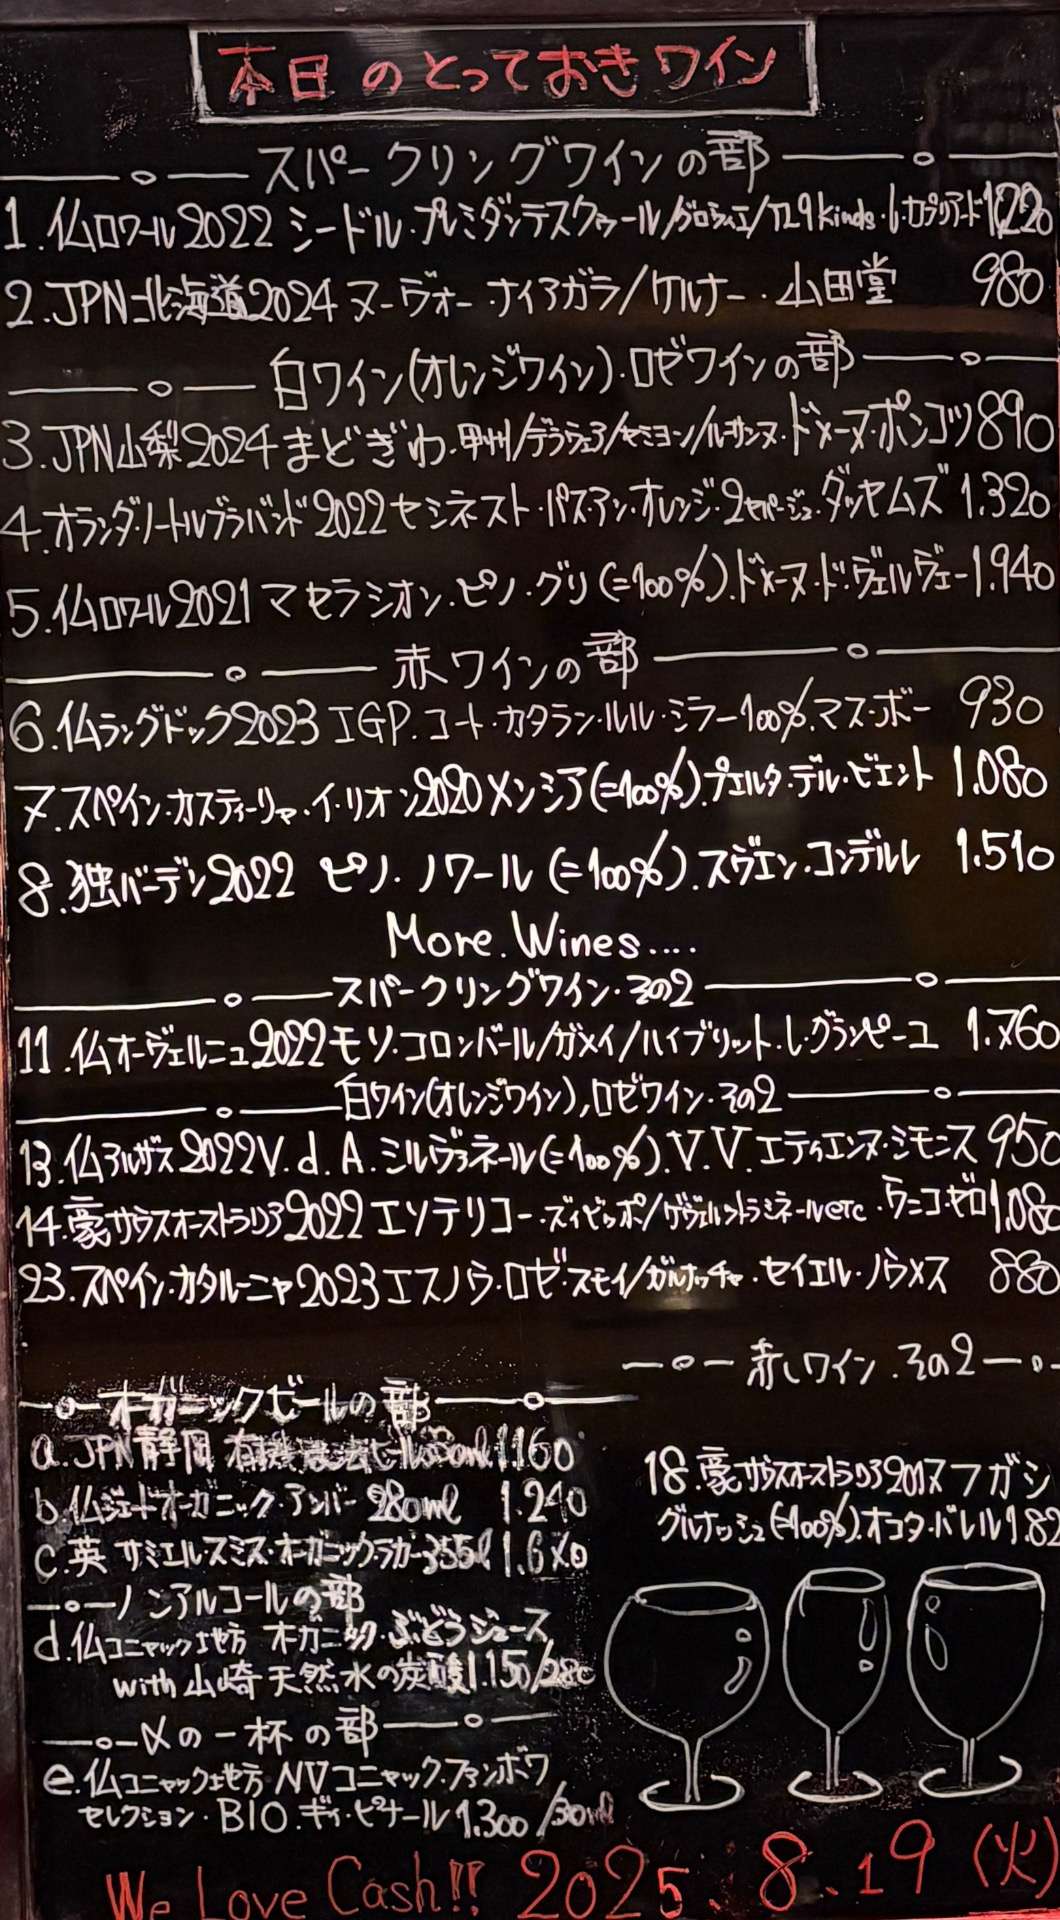 本日のとっておきワイン
スパークリングワインの部
1.仏ロワール2022 シードル・プレミダンデスクゥール/グロライエ/りんご9kinds・レ・カプリアード1220
2.JPN北海道2024 ヌーヴォー・ナイアガラ/ケルナー・山田堂 980
白ワイン(オレンジワイン)・ロゼワインの部
3.JPN山梨2024 まどぎわ・甲州/デラウェア/セミヨン/ルーサンヌ・ドメーヌ・ポンコツ 890
4.オランダ・ノートルブラバンド2022 セシネスト・パスアン・オレンジ・2セパージュ・ダッセムズ 1.320
5.仏ロワール2021 マセラシオン・ピノ・グリ(=100%).ドメーヌ・ド・ヴェルヴェー 1.940
赤ワインの部
6.仏ラングドック2023 IGP.コート・カタラン・ルル・ミラー100%.マス・ボー 930
7.スペイン・カスティーリャ・イ・リオン2020 メンシア(=100%).プエルタ・デル・ビエント 1.080
8.独バーデン2022 ピノ・ノワール(=100%).スヴェン・コンデルレ 1.510
More.Wines....
スパークリングワイン・その2
11.仏オーヴェルニュ2022 モリ・コロンバール/ガメイ/ハイブリット・レ・グランペーユ 1.760
白ワイン(オレンジワイン),ロゼワイン・その2
13.仏アルザス2022 V.d.A.シルヴァネール(=100%).V.V.エティエンヌ・シモニス 950
14.豪サウスオーストラリア2022 エソテリコー・ズィビッボ/ゲヴェルツトラミネールetc・ウニコ・ゼロ 1.08
23.スペイン・カタルーニャ2023 エスノウ・ロゼ・スモイ/ガルナッチャ・セイエル・ノウメス 880
赤しワイン.その2
オーガニックビールの部
a.JPN静岡 有機農法ビール ml 1.160
b.仏ジェードオーガニック・アンバー 280ml 1.240
c.英 サミエルスミス・オーガニック・ラガー355l 1.670
ノンアルコールの部
d.仏コニャック地方 オーガニック・ぶどうジュース
with山崎天然水の炭酸 1.150/280
〆の一杯の部
e.仏コニャック地方 NVコニャック・ファンボワ
セレクション・BIO.ギィ・ピナール 1.300/30ml
18.豪サウスオーストラリア フガシ
グルナッシュ(=100%).オコタ・バレル 1.82
We Love Cash!! 2025.8.19(火)